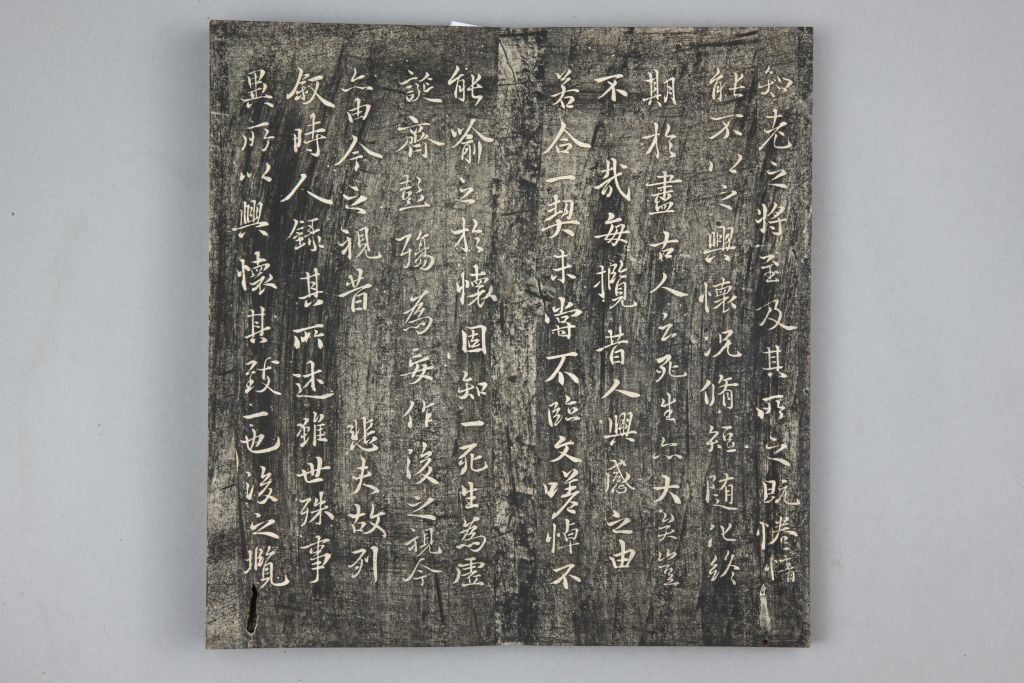 知老之将至及其所之既惓情
能不以之興懷况脩短随化終
期於盡古人云死生亦大矣豈
不 哉每攬昔人興感之由
若合一契未嘗不臨文嗟悼不
能喻之於懷固知一死生為虛
誕齊彭殤為妄作後之視今
亦由今之視昔 悲夫故列
叙時人録其所述雖世殊事
異所以興懷其致一也後之攬